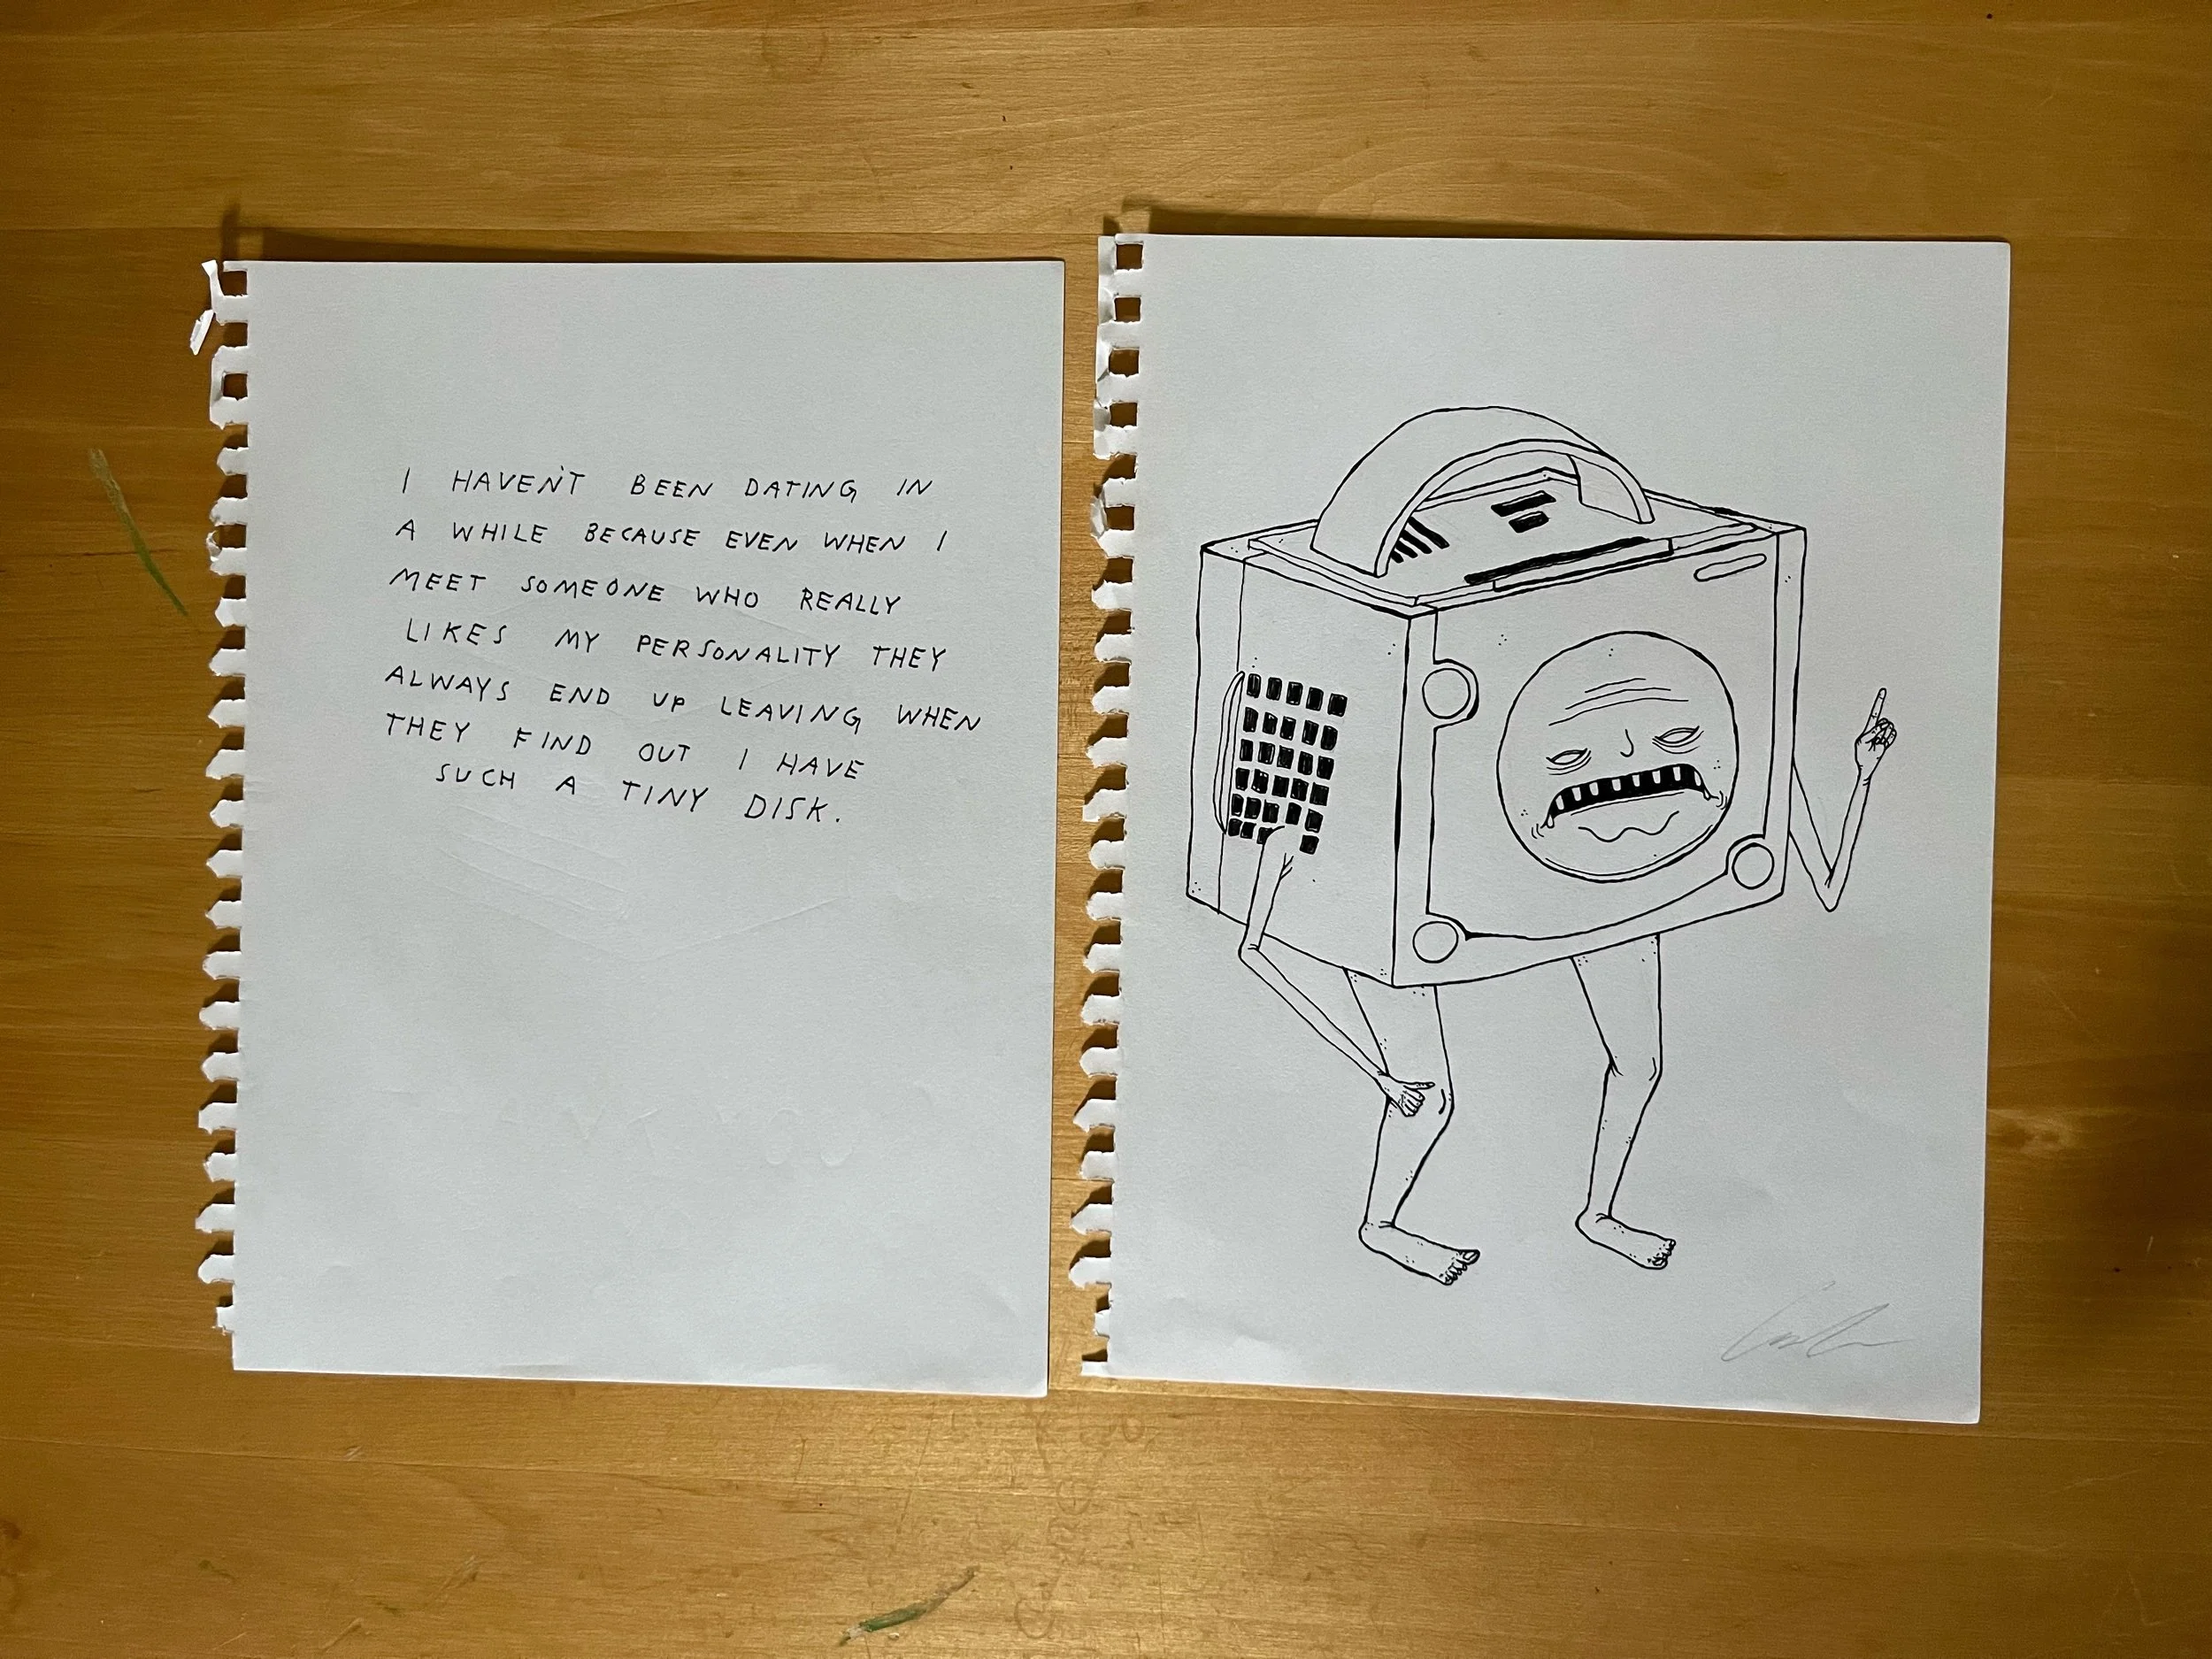 I HAVEN'T BEEN DATING IN
A WHILE BECAUSE EVEN WHEN I
MEET SOMEONE WHO REALLY
LIKES MY PERSONALITY THEY
ALWAYS END UP LEAVING WHEN
THEY FIND OUT I HAVE
SUCH A TINY DISK.